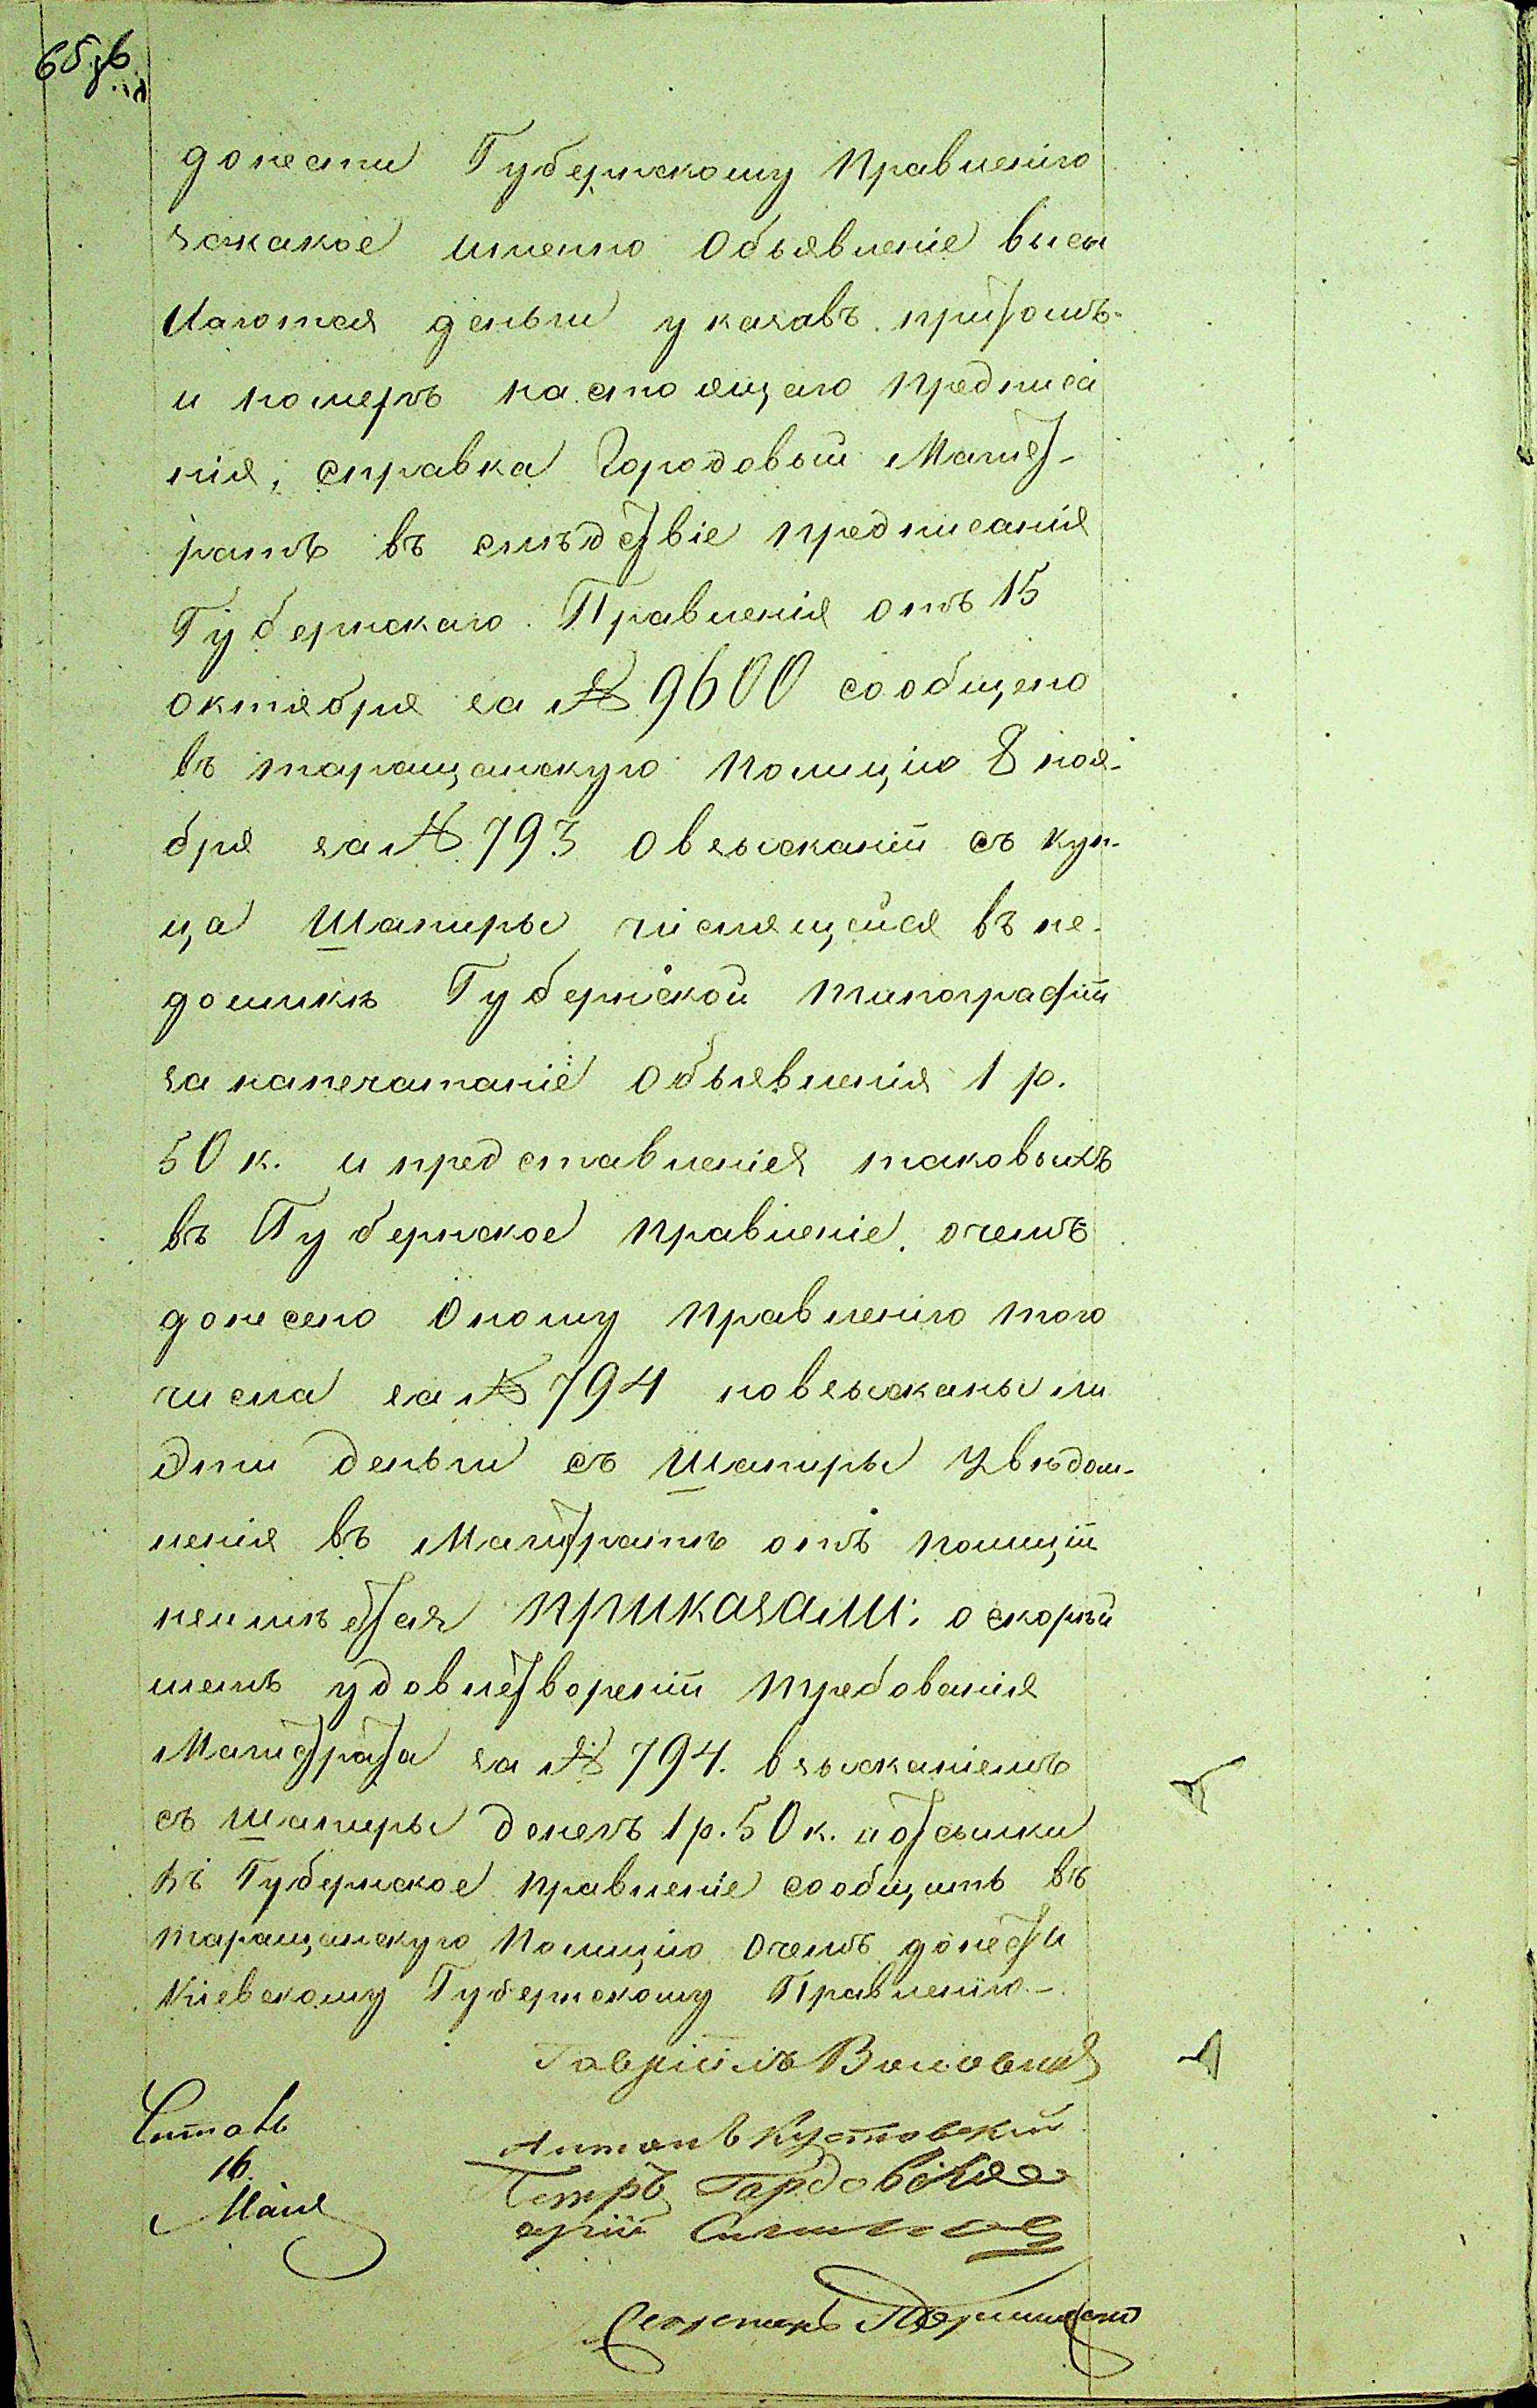 донести Губернскому Правленію
закакое именно Объявленіе высы
лаются деньги указавъ притомъ
и номеръ настоящаго предписа
нія, справка Городовый Магист-
ратъ въ слѣдствіе предписанія
Губернскаго Правленія отъ 15
октября за № 9600 сообщено
въ таращанскую полицію 8 ноя-
бря за № 793 овзысканіи съ куп-
ца Шапиры числящейся въ не-
доимкѣ Губернской типографіи
за напечатаніе объявленія 1 р.
50 к. и представленія таковыхъ
въ Губернское правленіе, очемъ
донесено Оному правленію того
числа за № 794 новзысканы ли
Эти деньги съ Шапиры Увѣдом-
ленія въ Магистратѣ отъ полиціи
неимѣется приказали: о скорѣй
шемъ удовлетвореніи требованія
Магистрата за № 794. взысканіемъ
съ шапиры денегъ 1 р. 50 к. и отсылки
въ Губернское правленіе сообщить въ
таращанскую Полицію Очемъ донести
Кіевскому Губернскому Правленію.-
Гавріилъ
Антонъ Кустовскій
Петръ
Читалъ
16.
Мая